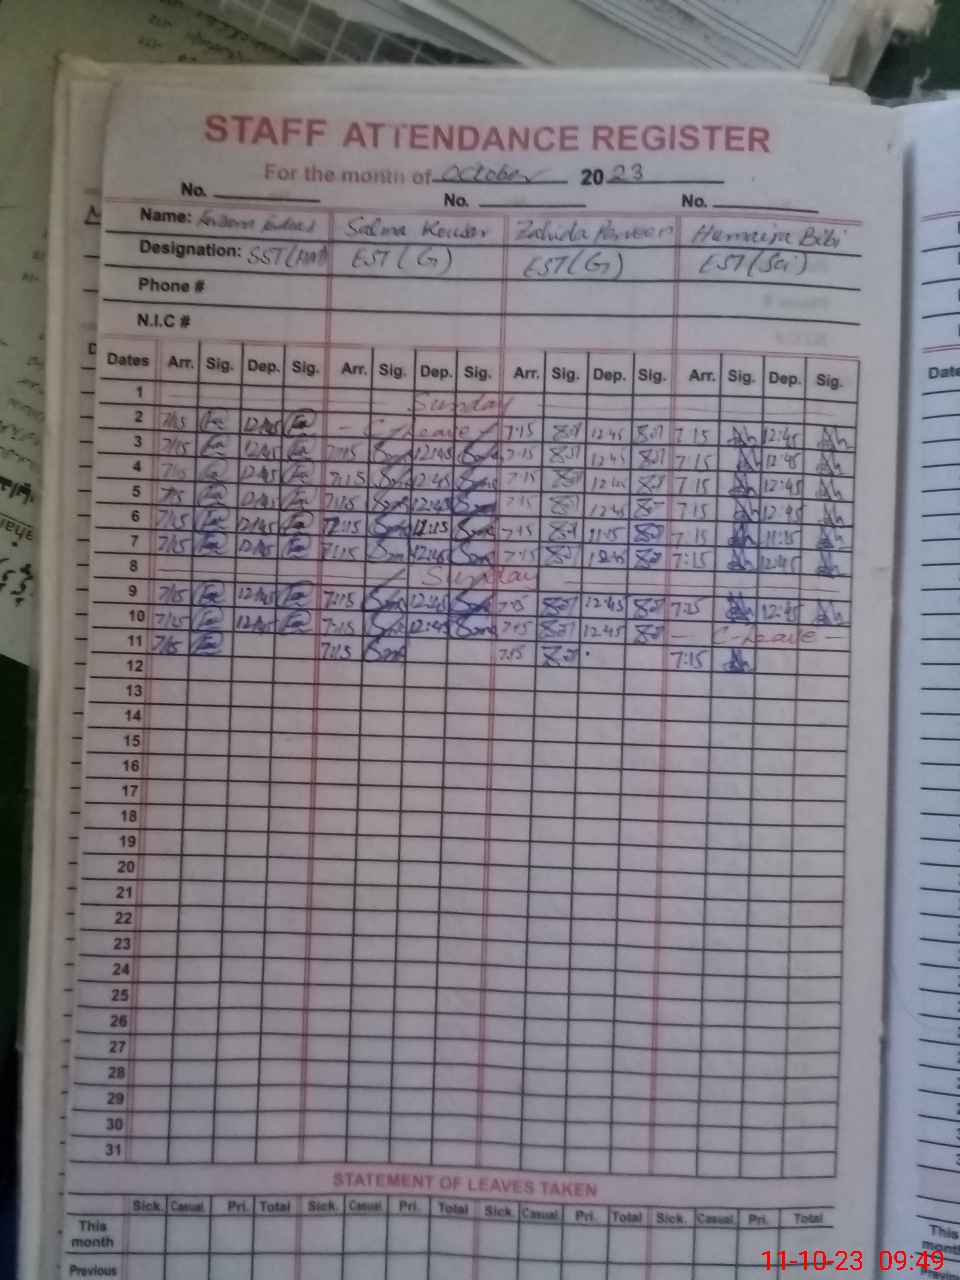 STAFF ATTENDANCE REGISTER
For the month of October 2023
No. No. No.
Name: Salma Kousar Zahida Parveen Humaira Bibi
Designation: SST( EST(G) EST(G) EST(Sci)
Phone #
N.I.C #
Dates Arr. Sig. Dep. Sig. Arr. Sig. Dep. Sig. Arr. Sig. Dep. Sig. Arr. Sig. Dep. Sig.
1 Sunday
2 7/15 12/45 C-Leave 7:15 12:45 7:15 12:45
3 7/15 12/45 7:15 12:45 7:15 12:45 7:15 12:45
4 7/15 12/45 7:15 12:45 7:15 7:15 12:45
5 7/15 12/45 7:15 12:45 7:15 12:45 7:15 12:45
6 7/15 12/45 11:15 7:15 11:15 7:15 11:15
7 7/15 12/45 7:15 12:45 7:15 12:45 7:15 12:45
8 Sunday
9 7/15 12/45 7:15 12:45 7:15 12:45 7:15 12:45
10 7/15 12/45 7:15 12:45 7:15 12:45 C-Leave
11 7/15 7:15 7:15 7:15
12
13
14
15
16
17
18
19
20
21
22
23
24
25
26
27
28
29
30
31
STATEMENT OF LEAVES TAKEN
Sick. Casual. Pri. Total Sick. Casual. Pri. Total Sick. Casual. Pri. Total Sick. Casual. Pri. Total
This
month
Previous
11-10-23 09:49
Date
This
month